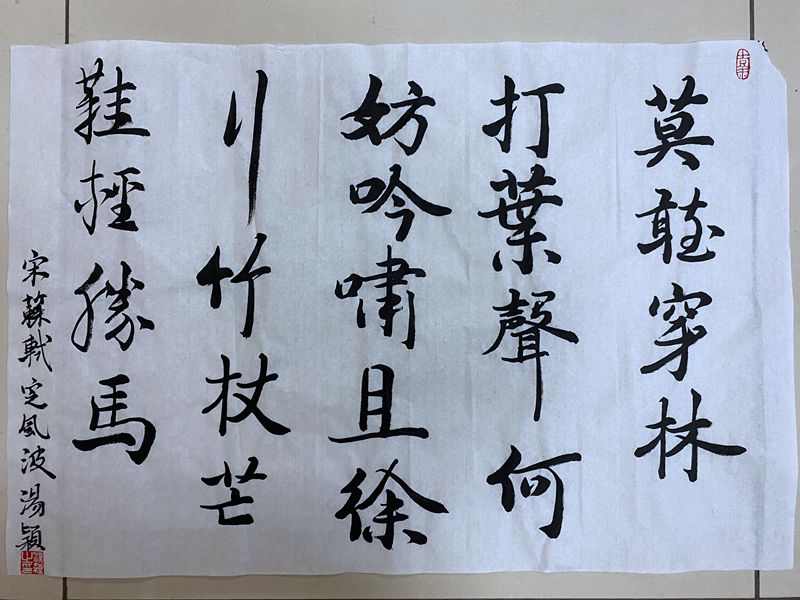 莫聽穿林
打葉聲何
妨吟嘯且徐
行竹杖芒
鞋輕勝馬
宋蘇軾定風波湯穎